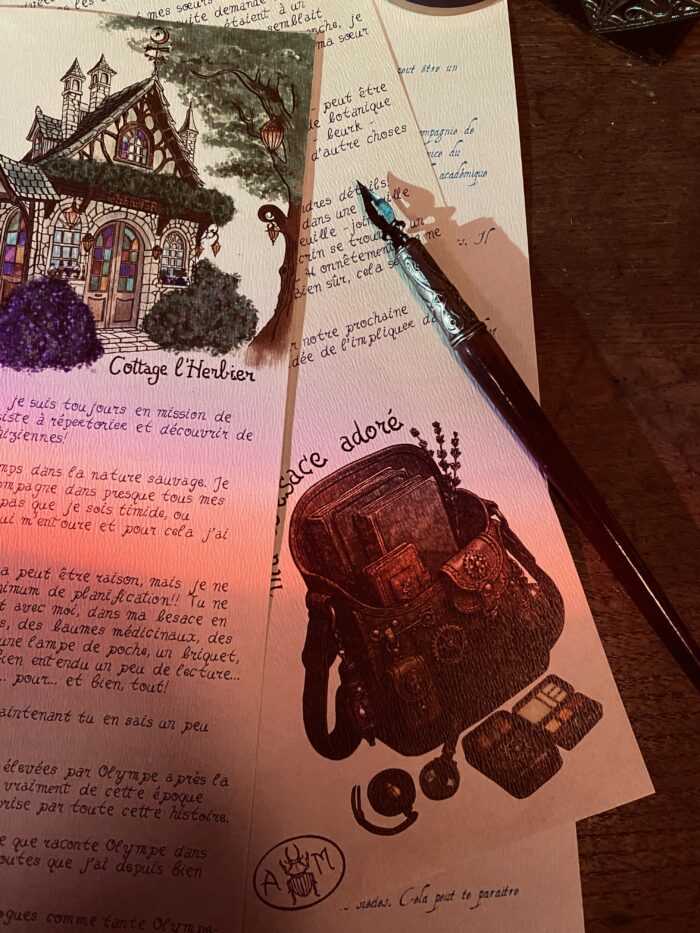 mes sœurs
uite demande
étaient à un
semblait
anche, je
ma sœur
peut être
de botanique
- beurk -
d'autre choses
ndres détails!
dans une
euille
crin se trouve un
Honnêtement
me
Bien sûr, cela
r notre prochaine
dée de l'impliquer
peut être un
mpagnie de
vice du
académique
Cottage l'Herbier
je suis toujours en mission de
siste à répertorier et découvrir de
mps dans la nature sauvage. Je
ompagne dans presque tous mes
pas que je sois timide, ou
ui m'entoure et pour cela j'ai
a peut être raison, mais je ne
nimum de planification!! Tu ne
t avec moi, dans ma besace en
s, des baumes médicinaux, des
une lampe de poche, un briquet,
bien entendu un peu de lecture...
.. pour... et bien, tout!
aintenant tu en sais un peu
élevées par Olympe après la
vraiment de cette époque
prise par toute cette histoire.
e que raconte Olympe dans
outes que j'ai depuis bien
ogues comme tante Olympe-
Ma besace adoré
A M
suedes. Cela peut te paraitre